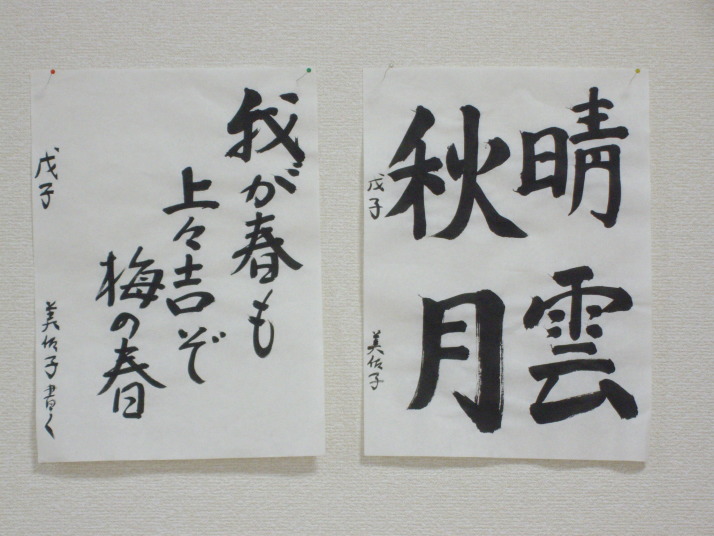 晴雲
秋月
戊子
美佐子
我が春も
上々吉ぞ
梅の春
戊子
美佐子書く